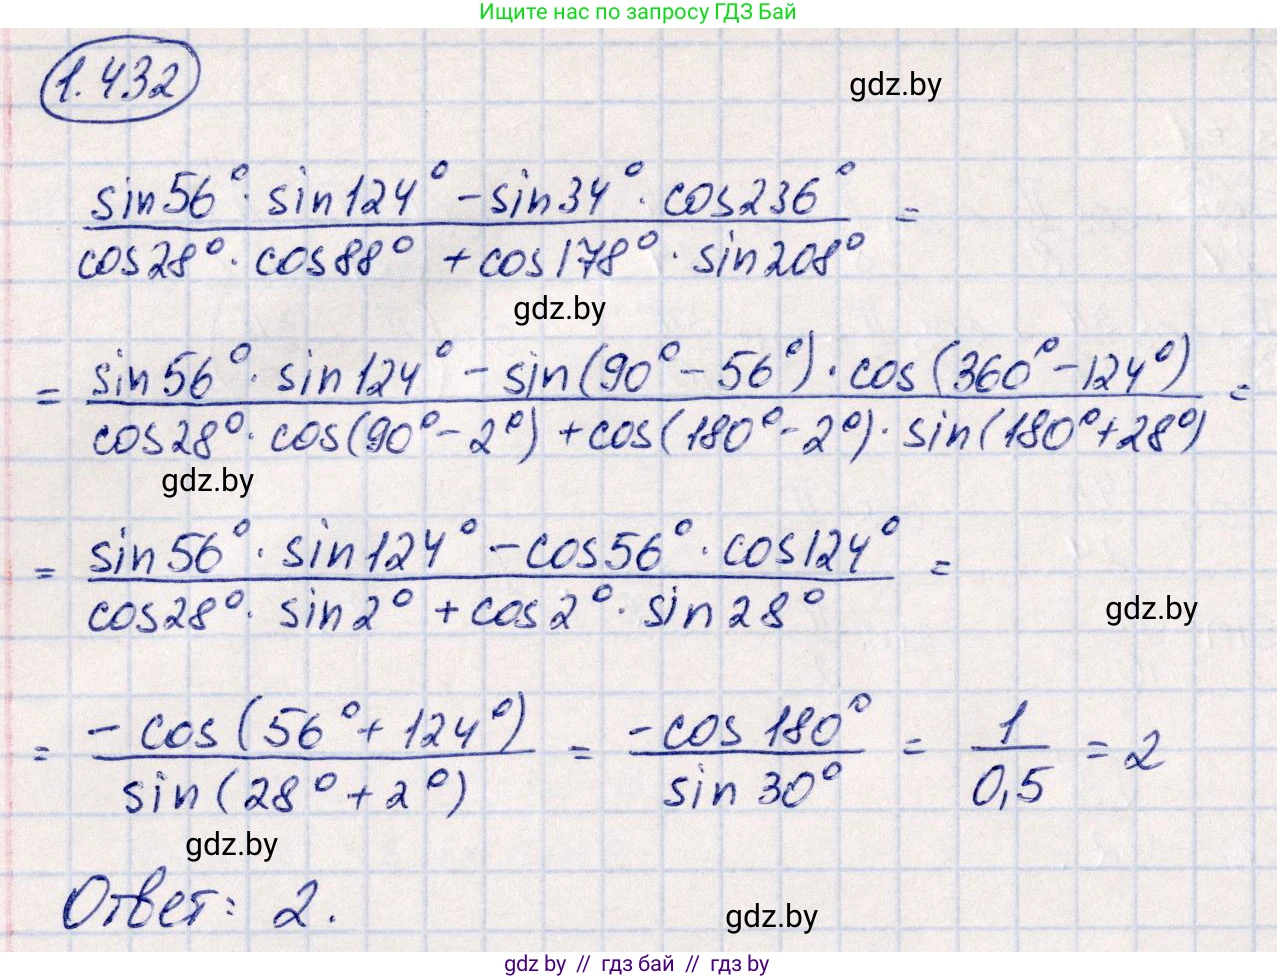 Ищите нас по запросу ГДЗ Бай
1.432
gdz.by
sin56°·sin124° - sin34°·cos236° =
cos28°·cos88° + cos178°·sin208°
gdz.by
= sin56°·sin124° - sin(90°-56°)·cos(360°-124°) =
cos28°·cos(90°-2°)+cos(180°-2°)·sin(180°+28°)
gdz.by
= sin56°·sin124° - cos56°·cos124° =
cos28°·sin2° + cos2°·sin28°
gdz.by
= -cos(56°+124°) = -cos180° = 1 = 2
sin(28°+2°) sin30° 0,5
gdz.by
Ответ: 2.
gdz.by
gdz by // гдз бай // гдз by